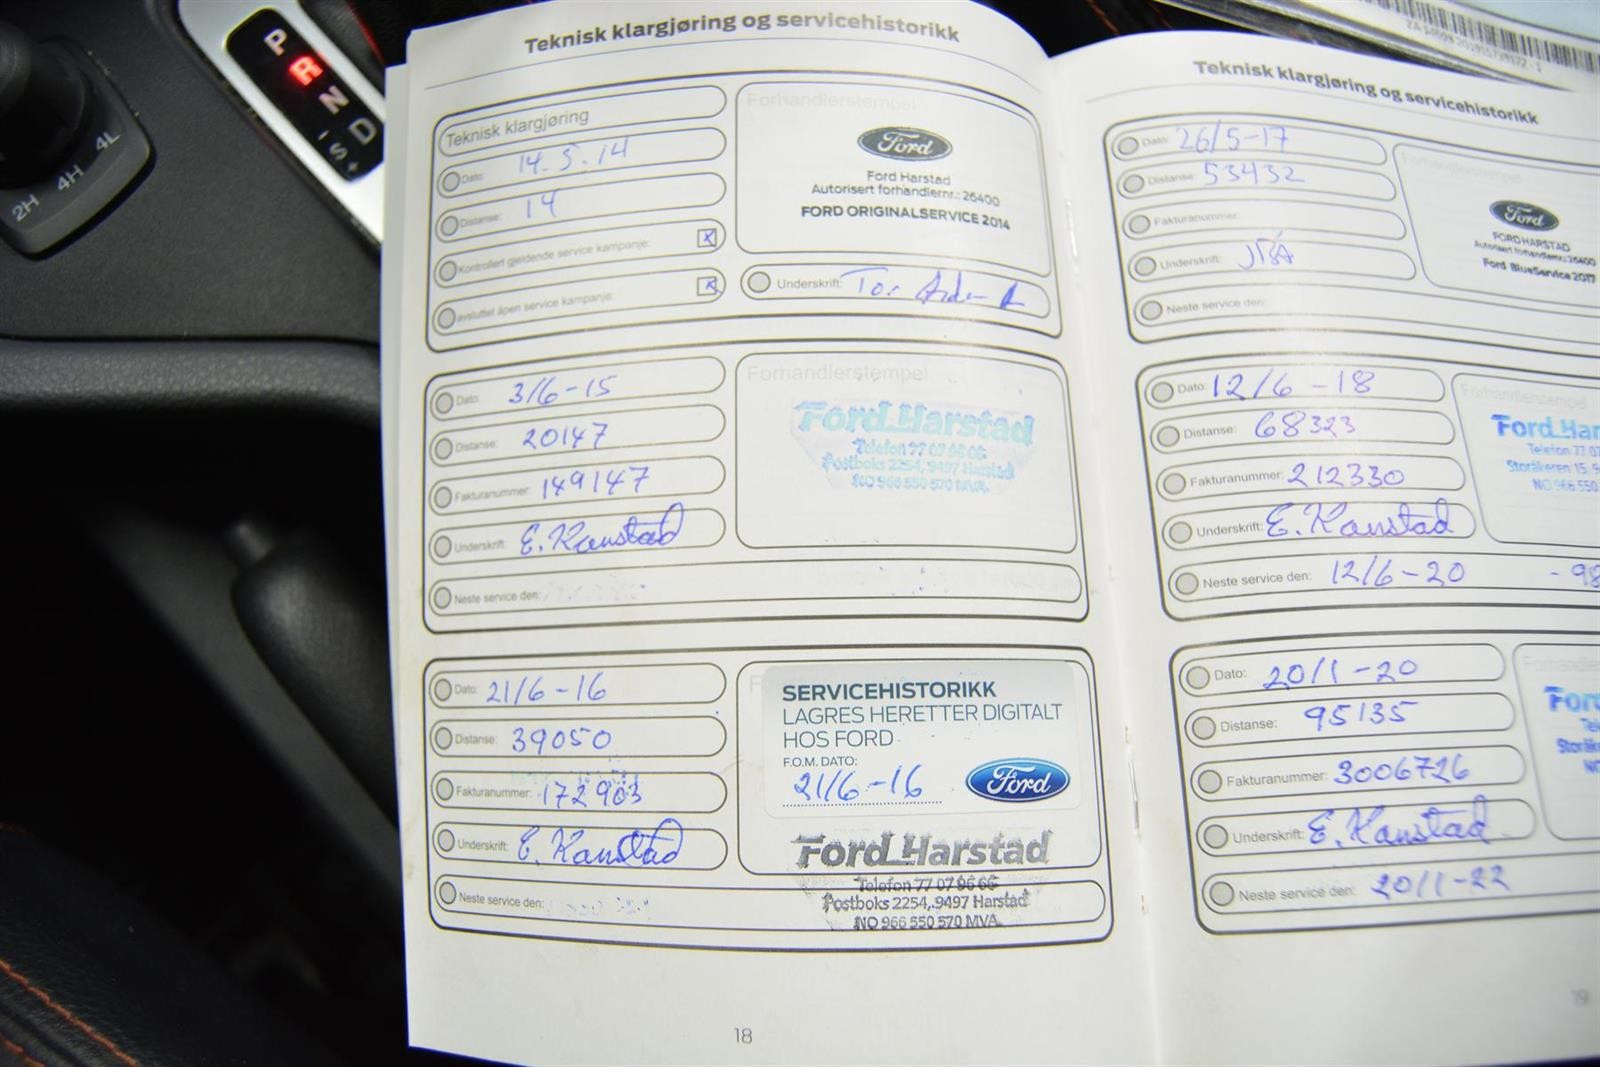 P
R
N
D
-
S
+
2H
4H
4L
Teknisk klargjøring og servicehistorikk
Teknisk klargjøring
Dato: 14.5.14
Distanse: 14
Kontrollert gjeldende service kampanje: x
avsluttet åpen service kampanje: x
Forhandlerstempel
Ford
Ford Harstad
Autorisert forhandlernr.: 26400
FORD ORIGINALSERVICE 2014
Underskrift: Tor
Dato: 3/6-15
Distanse: 20147
Fakturanummer: 149147
Underskrift: E. Kanstad
Neste service den:
Forhandlerstempel
Ford Harstad
Telefon 77 07 96 66
Postboks 2254, 9497 Harstad
NO 966 550 570 MVA.
Dato: 21/6-16
Distanse: 39050
Fakturanummer: 172903
Underskrift: E. Kanstad
Neste service den:
SERVICEHISTORIKK
LAGRES HERETTER DIGITALT
HOS FORD
F.O.M. DATO:
21/6-16
Ford
Ford Harstad
Telefon 77 07 96 66
Postboks 2254, 9497 Harstad
NO 966 550 570 MVA.
18
Teknisk klargjøring og servicehistorikk
Dato: 26/5-17
Distanse: 53432
Fakturanummer:
Underskrift:
Neste service den:
Ford
FORD HARSTAD
Autorisert forhandlernr.: 26400
Ford BlueService 2017
Dato: 12/6-18
Distanse: 68323
Fakturanummer: 212330
Underskrift: E. Kanstad
Neste service den: 12/6-20 -98
Forhandlerstempel
Ford Har
Telefon 77 07
Storåkeren 15, 9
NO 966 550
Dato: 20/1-20
Distanse: 95135
Fakturanummer: 3006726
Underskrift: E. Kanstad
Neste service den: 20/1-22
For
Tel
Storå
NO
19